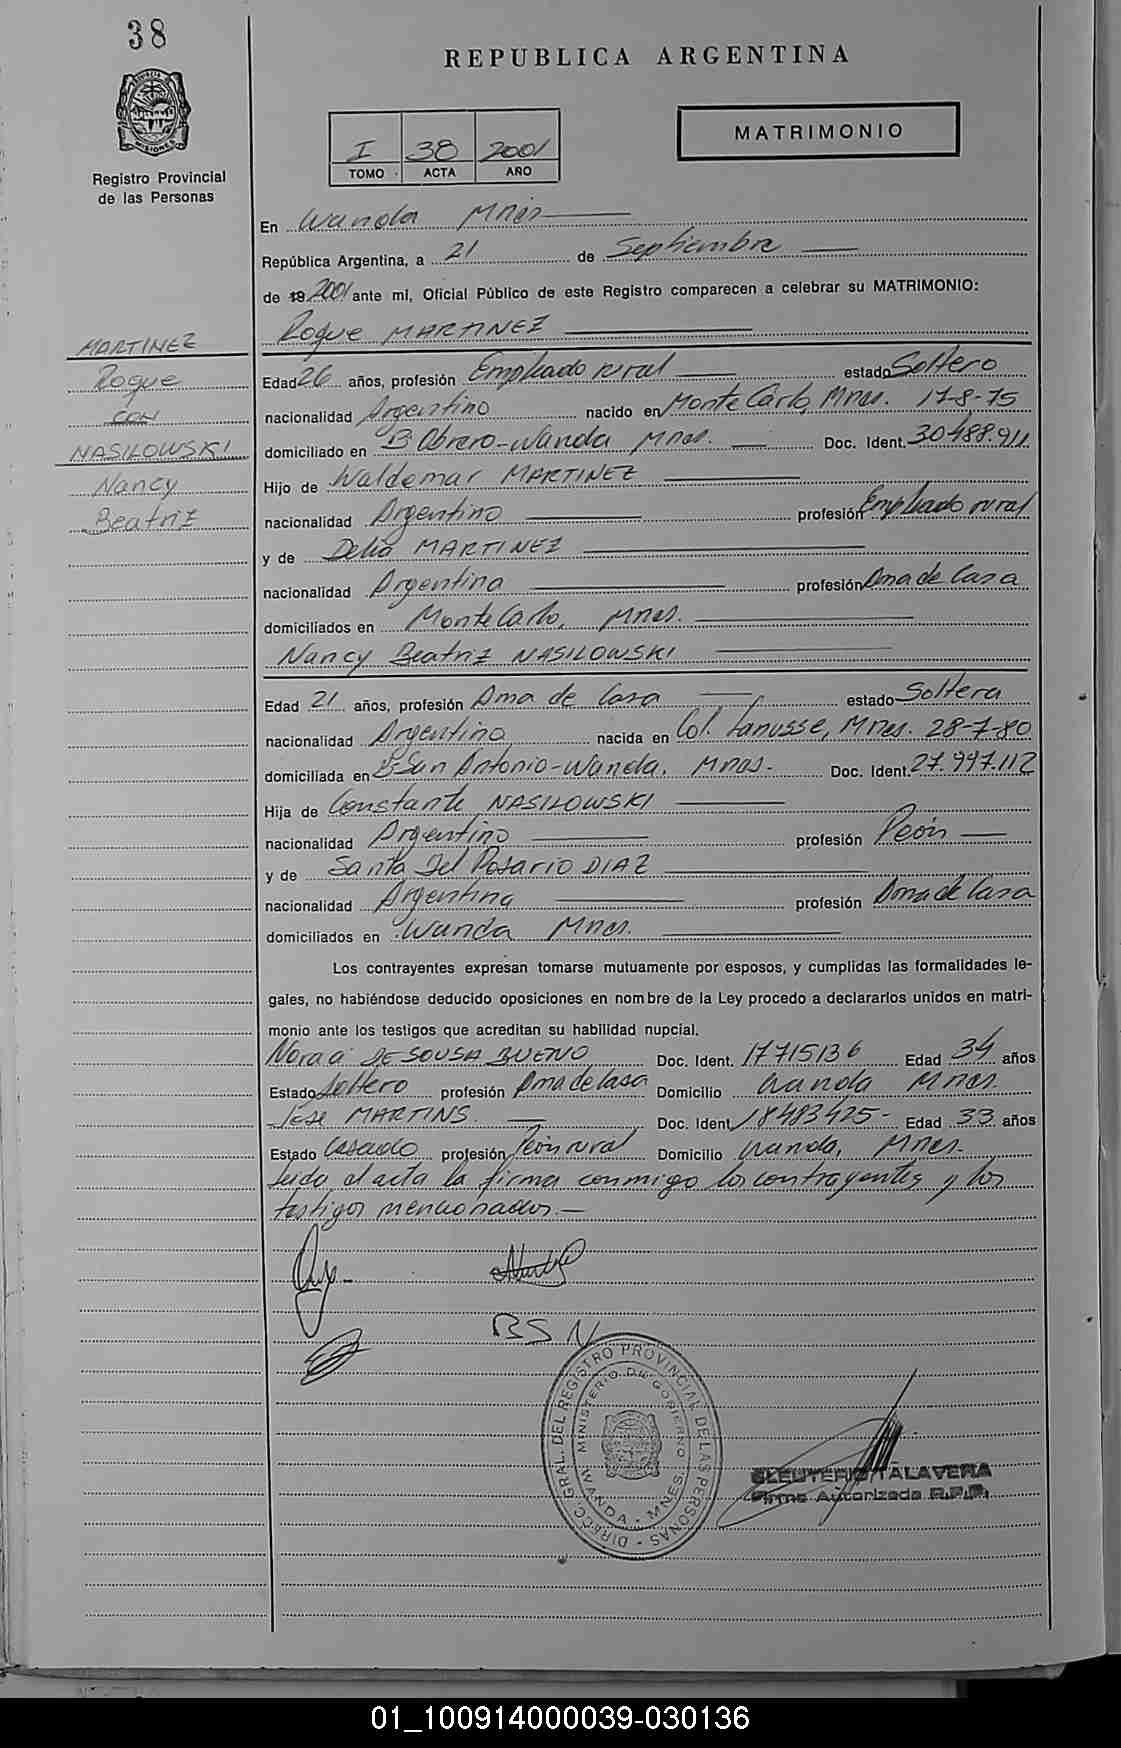 38
REPUBLICA ARGENTINA
MATRIMONIO
I 38 2001
TOMO ACTA AÑO
Registro Provincial
de las Personas
En Wanda Mnes
República Argentina, a 21 de Septiembre
de 19 2001 ante mi, Oficial Público de este Registro comparecen a celebrar su MATRIMONIO:
Roque MARTINEZ
MARTINEZ
Roque
CON
NASILOWSKI
Nancy
Beatriz
Edad 26 años, profesión Empleado rural estado Soltero
nacionalidad Argentino nacido en Monte Carlo, Mnes. 17-8-75
domiciliado en B Obrero-Wanda Mnes. Doc. Ident. 30488.911
Hijo de Waldemar MARTINEZ
nacionalidad Argentino profesión Empleado rural
y de Delia MARTINEZ
nacionalidad Argentina profesión Ama de Casa
domiciliados en Monte Carlo, Mnes.
Nancy Beatriz NASILOWSKI
Edad 21 años, profesión Ama de Casa estado Soltera
nacionalidad Argentina nacida en Col. Lanusse, Mnes. 28-7-80
domiciliada en B San Antonio-Wanda, Mnes. Doc. Ident. 27.997.112
Hija de Constante NASILOWSKI
nacionalidad Argentino profesión Peón
y de Santa Del Rosario DIAZ
nacionalidad Argentina profesión Ama de Casa
domiciliados en Wanda Mnes.
Los contrayentes expresan tomarse mutuamente por esposos, y cumplidas las formalidades le-
gales, no habiéndose deducido oposiciones en nombre de la Ley procedo a declararlos unidos en matri-
monio ante los testigos que acreditan su habilidad nupcial.
DE SOUSA BUENO Doc. Ident. 17715136 Edad 34 años
Estado Soltero profesión Ama de Casa Domicilio Wanda Mnes.
Jose MARTINS. Doc. Ident. 18483425- Edad 33 años
Estado Casado profesión Peón rural Domicilio Wanda, Mnes.
Leida el acta la firman conmigo los contrayentes y los
testigos mencionados.-
BSN
DIRECC. GRAL. DEL REGISTRO PROVINCIAL DE LAS PERSONAS
MINISTERIO DE GOBIERNO
WANDA - MNES.
ELEUTERIO TALAVERA
Firma Autorizada R.P.P.
01_100914000039-030136